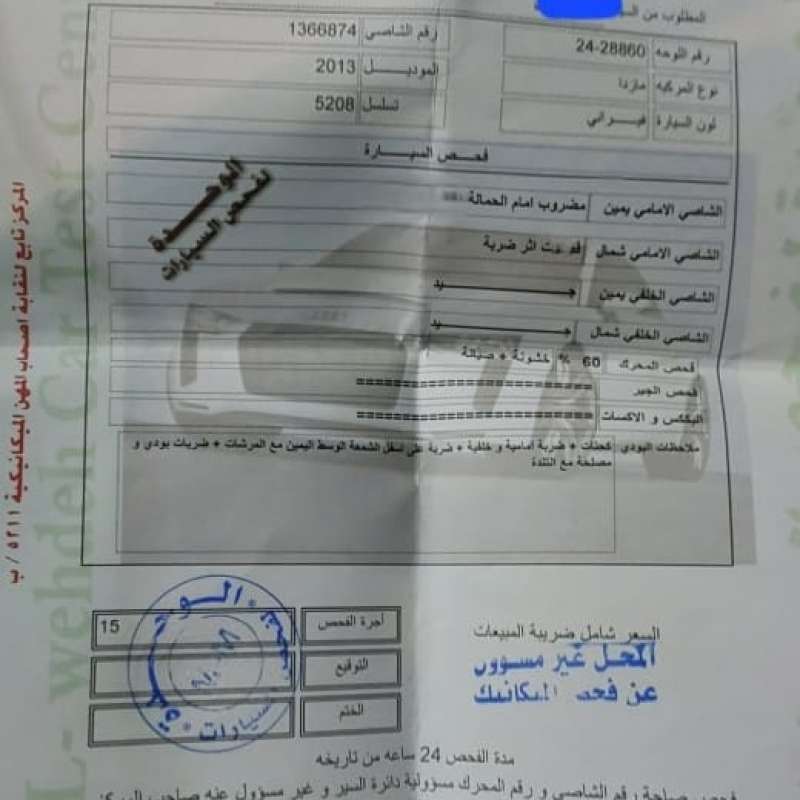 المطلوب من
رقم اللوحه 24-28860 رقم الشاصي 1366874
نوع المركبه مازدا الموديل 2013
لون السيارة فيراني تسلسل 5208
فحص السيارة
الوحدة
لفحص السيارات
الشاصي الامامي يمين مضروب امام الحمالة
الشاصي الامامي شمال اثر ضربة
الشاصي الخلفي يمين جيد
الشاصي الخلفي شمال جيد
فحص المحرك 60 % خشونة + صيانة
فحص الجير ====================
البكس و الاكسات ====================
ملاحظات البودي كحتات + ضربة امامية و خلفية + ضربة على اسفل الشمعة الوسط اليمين مع المرشات + ضربات بودي و
مصلحة مع التندة
المركز تابع لنقابة اصحاب المهن الميكانيكية ٥٢١١ / ب
AL- wehdeh Car Test Cen
أجرة الفحص 15
التوقيع
الختم
السعر شامل ضريبة المبيعات
المحل غير مسؤول
عن فحص الميكانيك
مدة الفحص 24 ساعه من تاريخه
فحص صلاحة رقم الشاصي و رقم المحرك مسؤولية دائرة السير و غير مسؤول عنه صاحب المركز